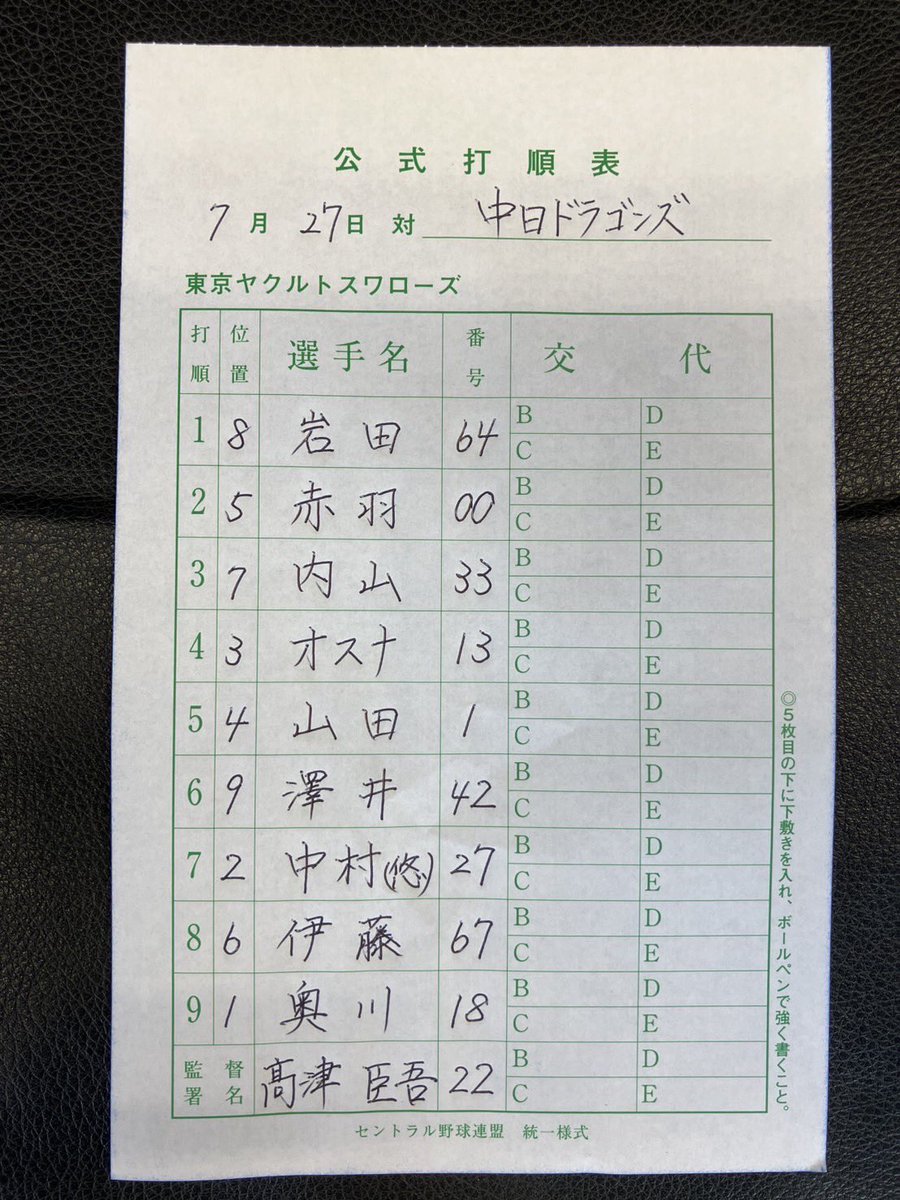 公式打順表
7月27日 対 中日ドラゴンズ
東京ヤクルトスワローズ
打順 位置 選手名 番号 交代
1 8 岩田 64 B D C E
2 5 赤羽 00 B D C E
3 7 内山 33 B D C E
4 3 オスナ 13 B D C E
5 4 山田 1 B D C E
6 9 澤井 42 B D C E
7 2 中村(悠) 27 B D C E
8 6 伊藤 67 B D C E
9 1 奥川 18 B D C E
監督署名 髙津 臣吾 22 B D C E
◎5枚目の下に下敷きを入れ、ボールペンで強く書くこと。
セントラル野球連盟 統一様式